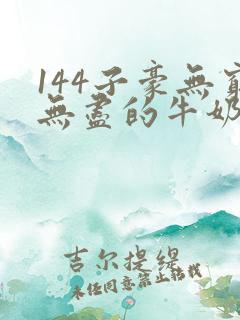 144子豪無
無盡的牛奶
吉尔提
未经同意禁止转载